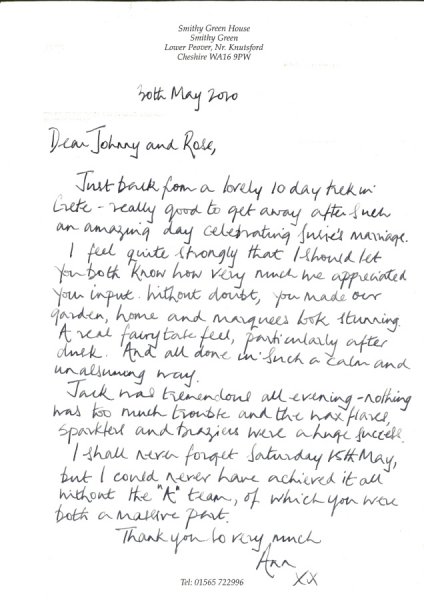 Smithy Green House
Smithy Green
Lower Peover, Nr. Knutsford
Cheshire WA16 9PW
30th May 2010
Dear Johnny and Rose,
Just back from a lovely 10 day trek in
Crete - really good to get away after such
an amazing day celebrating Susie's marriage.
I feel quite strongly that I should let
you both know how very much we appreciated
your input. Without doubt, you made our
garden, home and marquees look stunning.
A real fairytale feel, particularly after
dusk. And all done in such a calm and
unassuming way.
Jack was tremendous all evening - nothing
was too much trouble and the wax flares,
sparklers and braziers were a huge success.
I shall never forget Saturday 15th May,
but I could never have achieved it all
without the "A" team, of which you were
both a massive part.
Thank you so very much
Ann
xx
Tel: 01565 722996